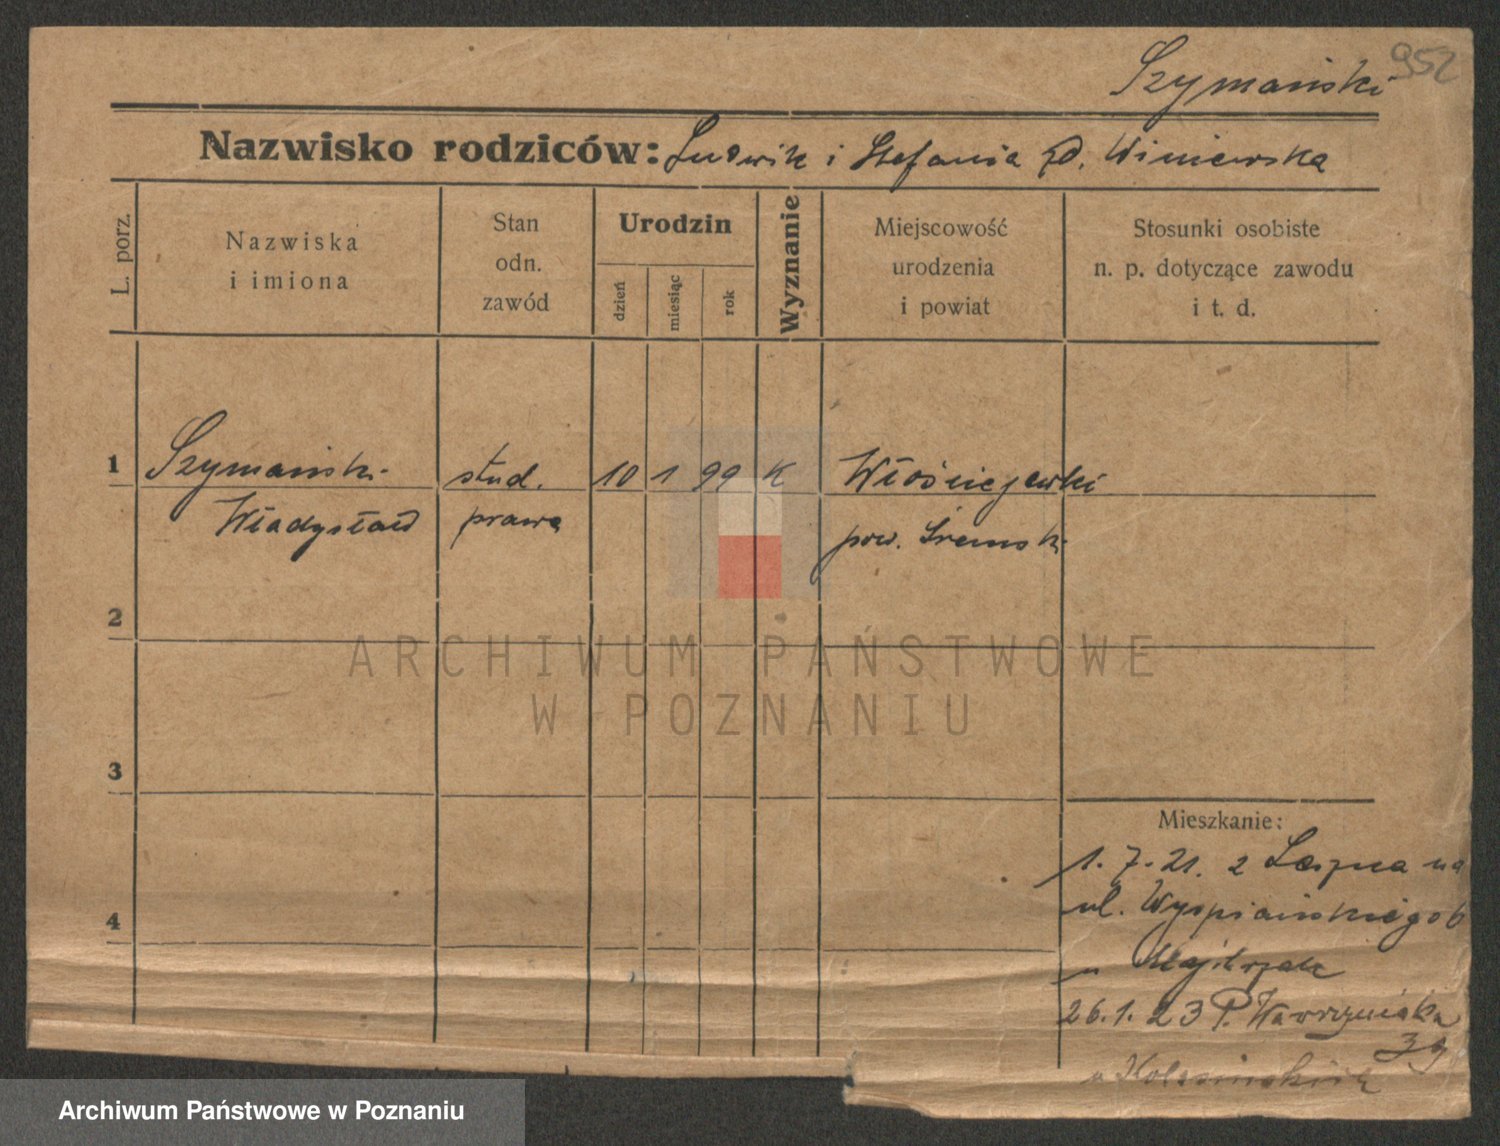 952
Szymański
Nazwisko rodziców: Ludwik i Stefania zd. Winiewska
L. porz.
Nazwiska
i imiona
Stan
odn.
zawód
Urodzin
dzień
miesiąc
rok
Wyznanie
Miejscowość
urodzenia
i powiat
Stosunki osobiste
n. p. dotyczące zawodu
i t. d.
1 Szymański stud. 10 1 99 K Włościejewki
Władysław prawa pow. Śremski
2
3
4
Mieszkanie:
1.7.21. z Leszna na
ul. Wyspiańskiego 6
u Majtrzak
26.1.23 P. Wawrzyniaka
39
u
ARCHIWUM PAŃSTWOWE
W POZNANIU
Archiwum Państwowe w Poznaniu